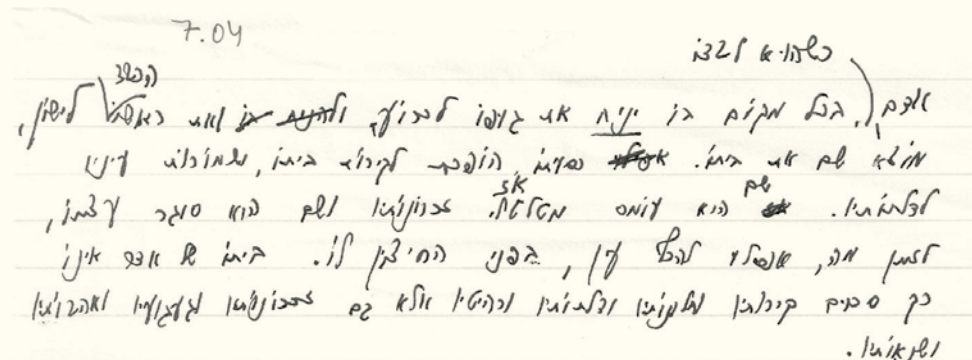 7.04
כשהוא לבדו
הכבד
אדם, בכל מקום בו יניח את גופו לכרוע, ולהניח בו ואת ראשו לישון,
מוצא שם את ביתו. הופכת לקירות ביתו, ושמורות עיניו
שם
אז
לדלתותיו. הוא עומס מטלטל זכרונותיו ושם הוא סוגר עצמו,
לזמן מה, אפילו להרף עין, בפני החיצון לו. ביתו של אדם אינו
רק סכום קירותיו וחלונותיו ודלתותיו ורהיטיו אלא גם זכרונותיו וגעגועיו ואהבותיו
ושנאותיו.